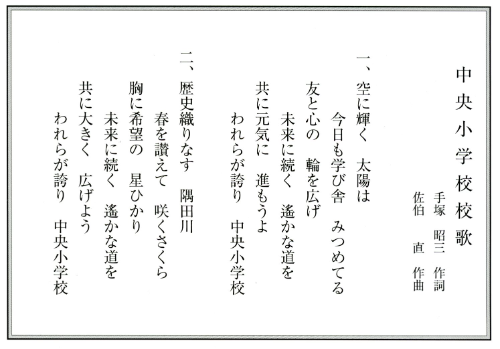 中央小学校校歌
手塚 昭三 作詞
佐伯 直 作曲
一、空に輝く 太陽は
今日も学び舎 みつめてる
友と心の 輪を広げ
未来に続く 遙かな道を
共に元気に 進もうよ
われらが誇り 中央小学校
二、歴史織りなす 隅田川
春を讃えて 咲くさくら
胸に希望の 星ひかり
未来に続く 遙かな道を
共に大きく 広げよう
われらが誇り 中央小学校